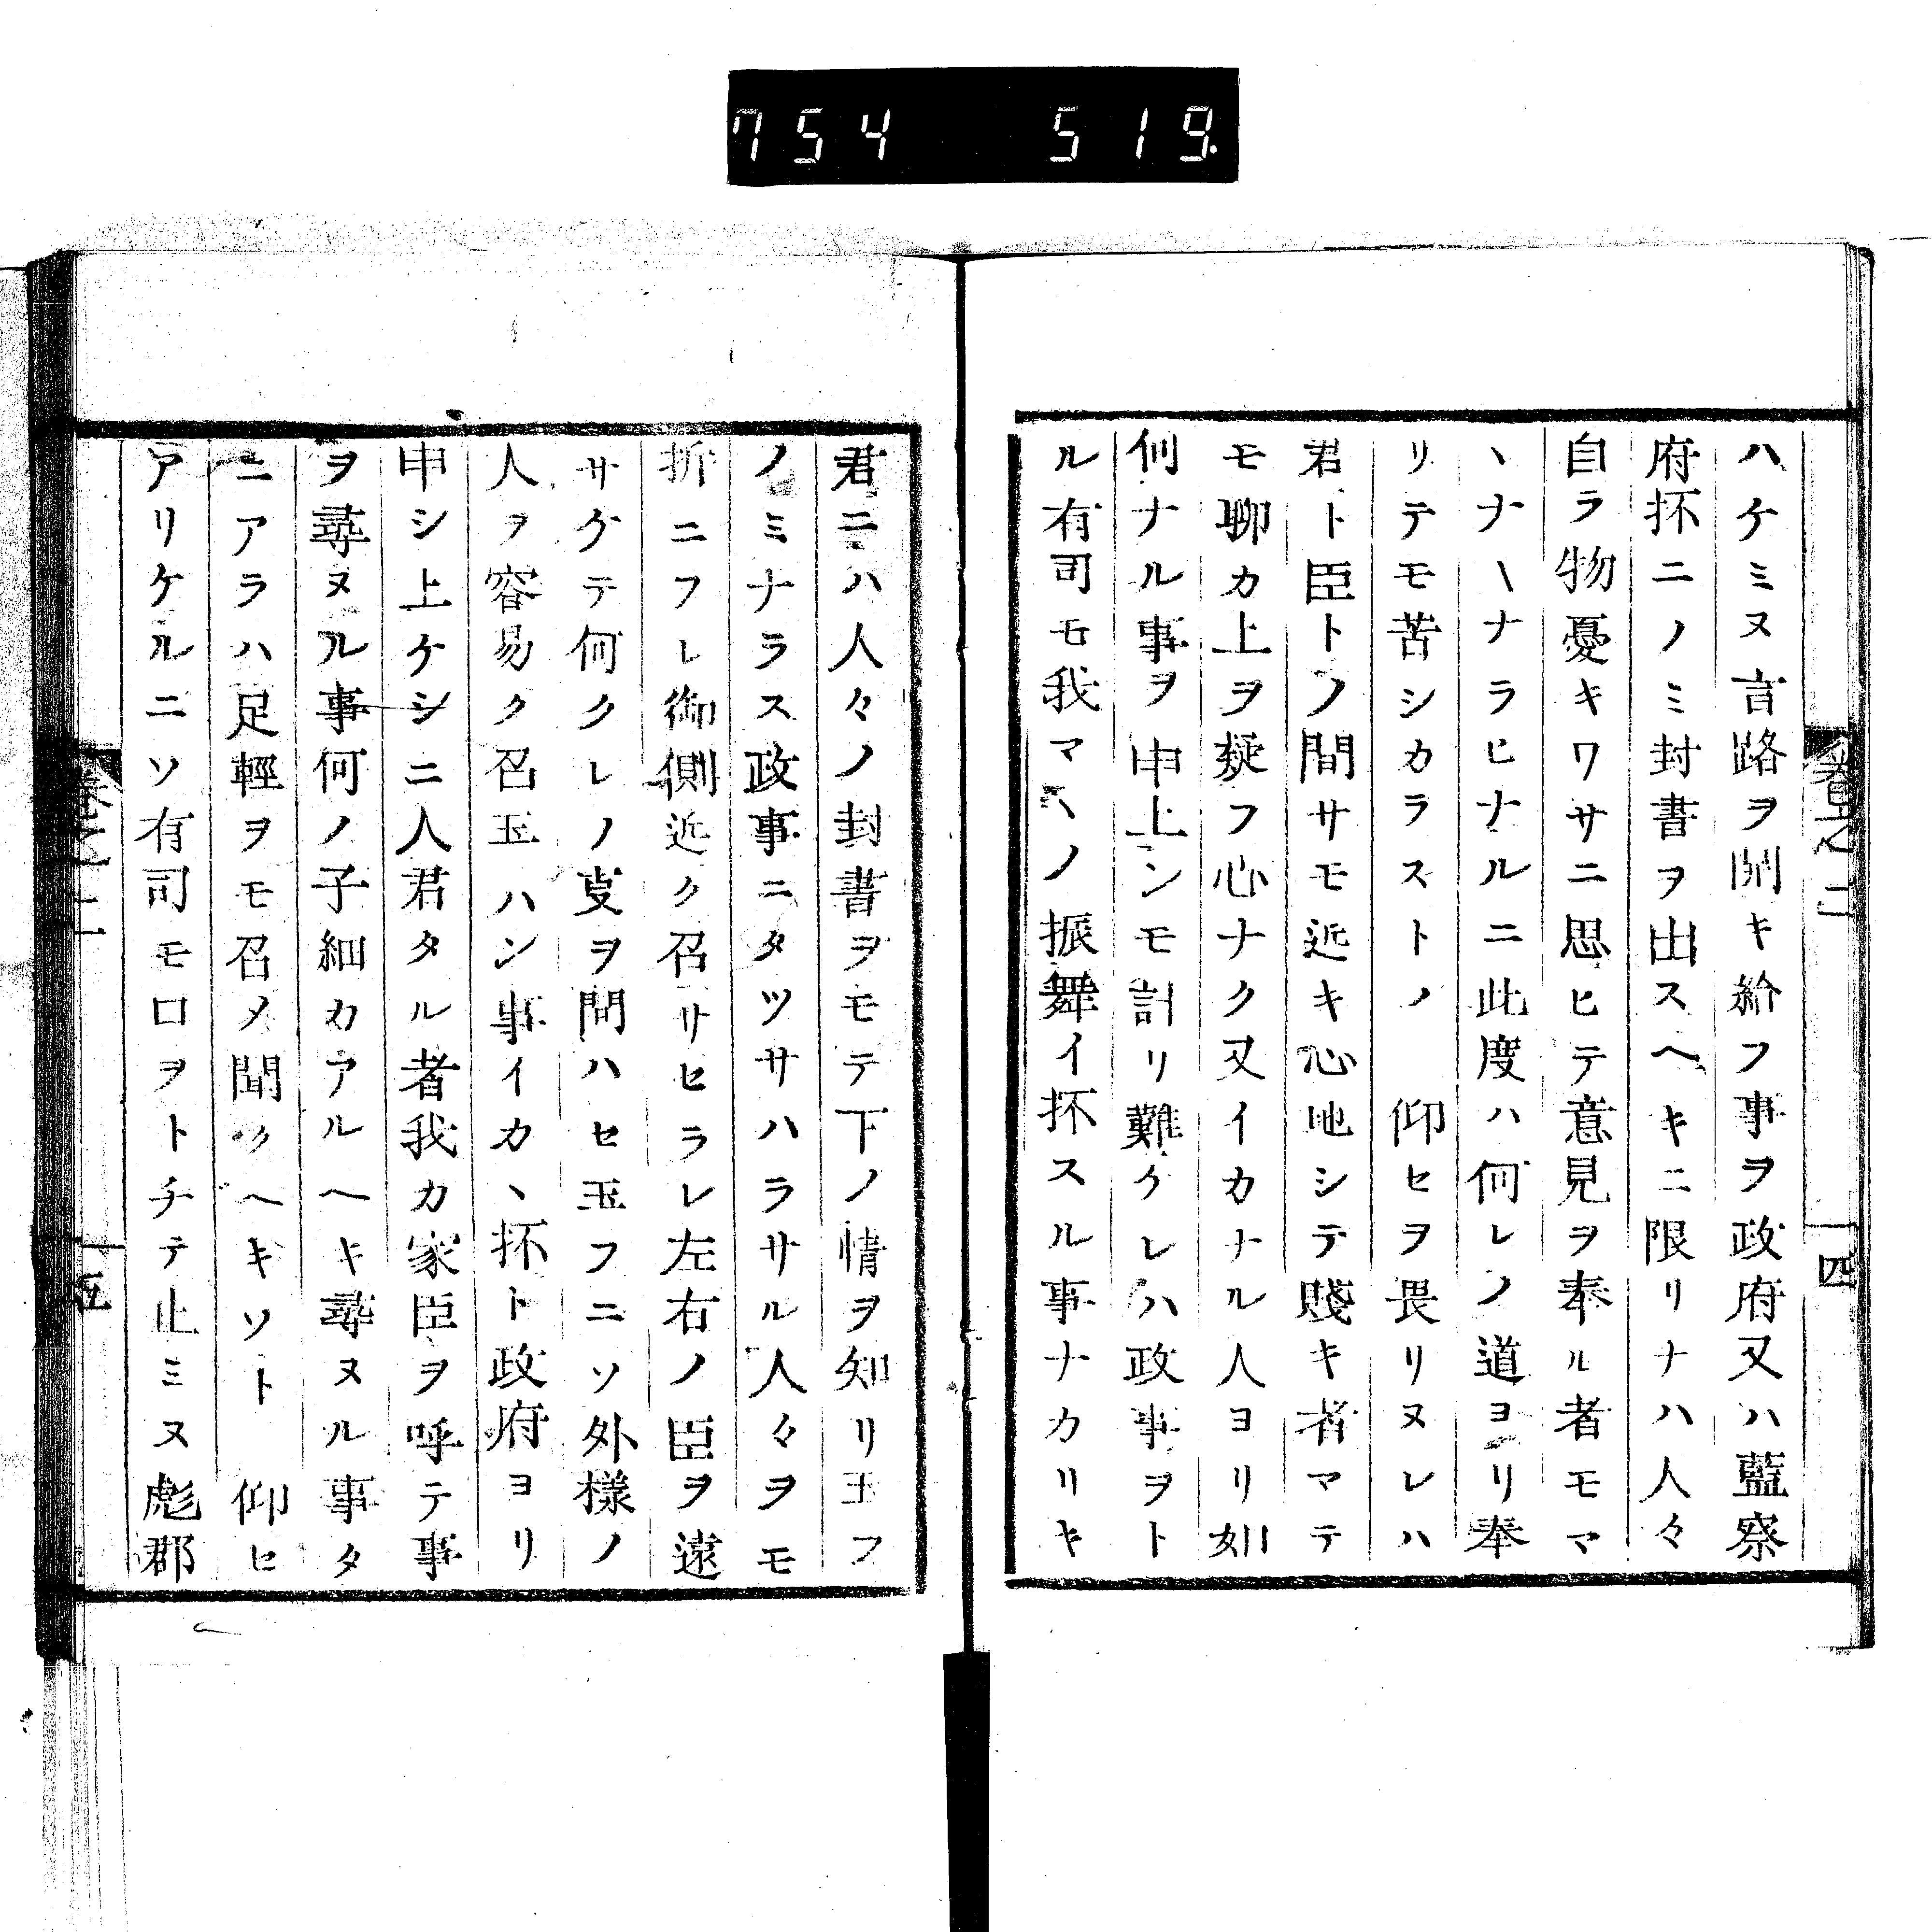 754 519.
ハケミヌ言路ヲ開キ給フ事ヲ政府又ハ藍察
府抔ニノミ封書ヲ出スヘキニ限リナハ人々
自ラ物憂キワサニ思ヒテ意見ヲ奉ル者モマ
ヽナヽナラヒナルニ此度ハ何レノ道ヨリ奉
リテモ苦シカラストノ 仰セヲ畏リヌレハ
君ト臣トノ間サモ近キ心地シテ賤キ者マテ
モ聊カ上ヲ疑フ心ナク又イカナル人ヨリ如
何ナル事ヲ申上ンモ計リ難クレハ政事ヲト
ル有司モ我マヽノ振舞イ抔スル事ナカリキ
卷之二 四
君ニハ人々ノ封書ヲモテ下ノ情ヲ知リ玉フ
ノミナラス政事ニタツサハラサル人々ヲモ
折ニフレ御側近ク召サセラレ左右ノ臣ヲ遠
サケテ何クレノ叓ヲ問ハセ玉フニソ外樣ノ
人ヲ容易ク召玉ハン事イカヽ抔ト政府ヨリ
申シ上ケシニ人君タル者我カ家臣ヲ呼テ事
ヲ尋ヌル事何ノ子細カアルヘキ尋ヌル事タ
ニアラハ足輕ヲモ召メ聞クヘキソト 仰セ
アリケルニソ有司モロヲトチテ止ミヌ彪郡
卷之二 五